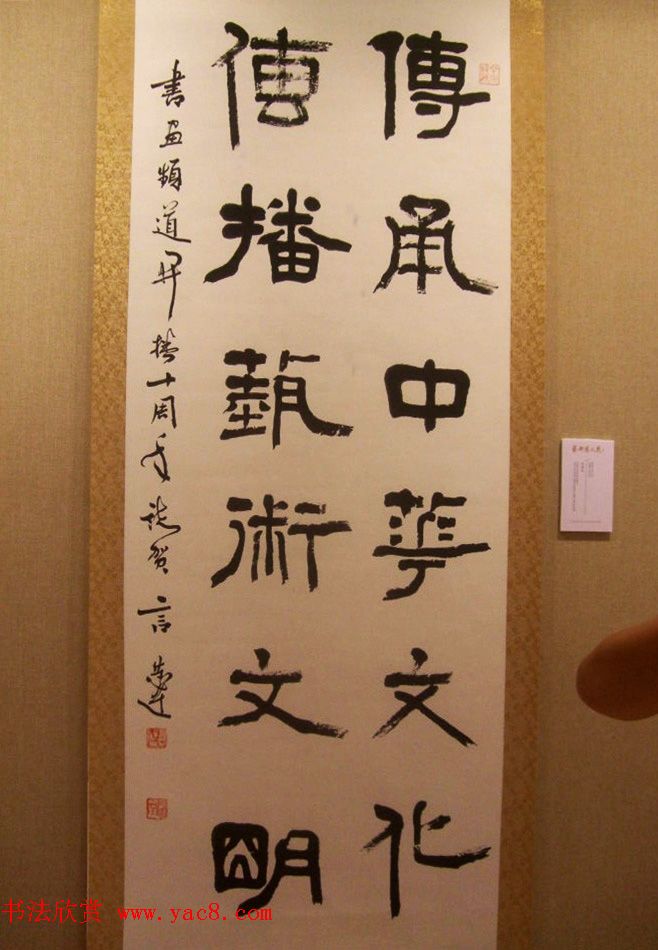 傳承中華文化
傳播藝術文明
書画頻道开播十周年誌贺 言恭达
书法欣赏 www.yac8.com